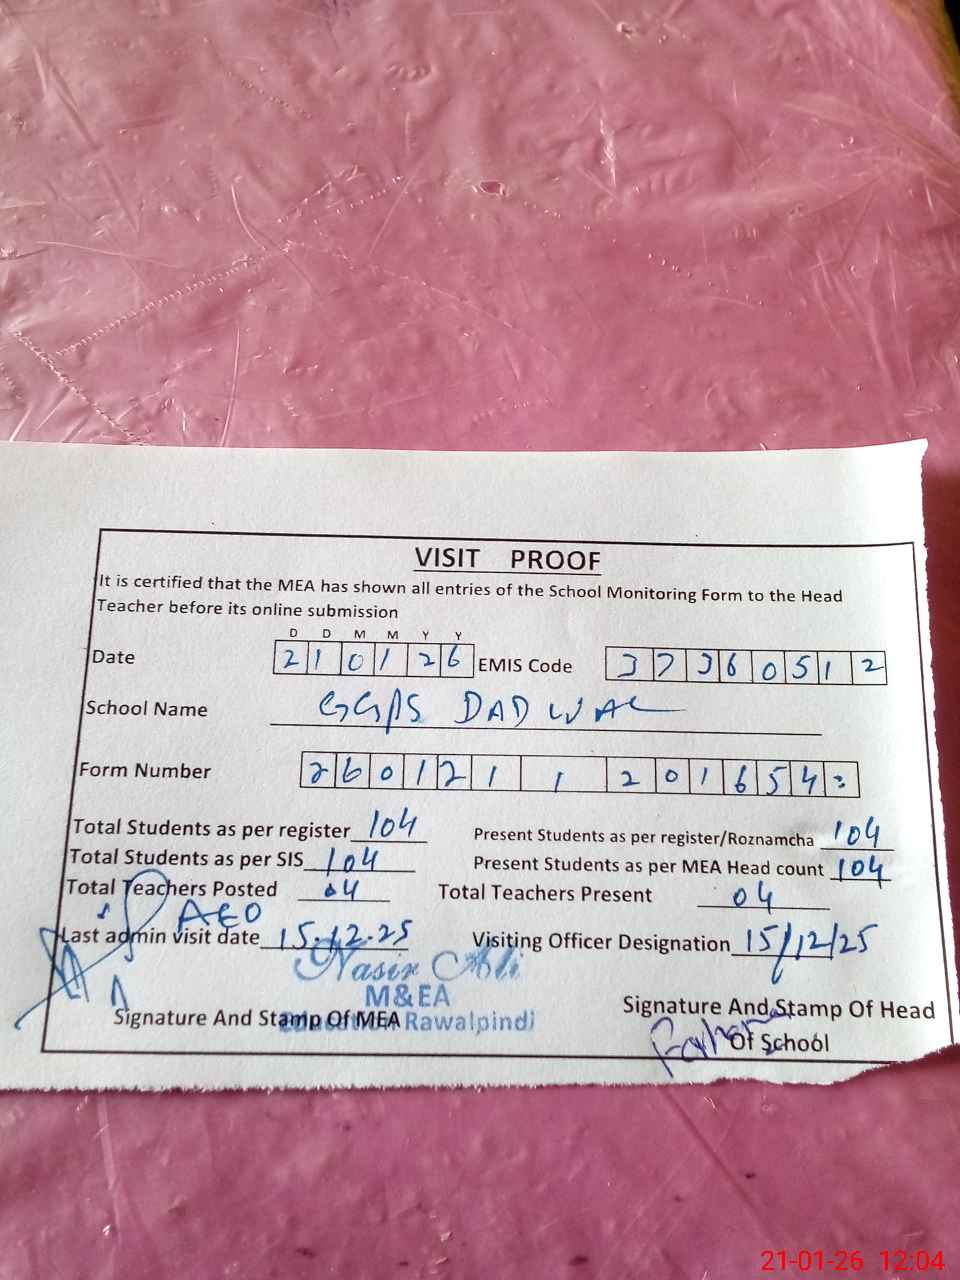 VISIT PROOF
It is certified that the MEA has shown all entries of the School Monitoring Form to the Head
Teacher before its online submission
D D M M Y Y
Date 2 1 0 1 2 6 EMIS Code 3 7 3 6 0 5 1 2
School Name GGPS DADWAL
Form Number 2 6 0 1 2 1 1 2 0 1 6 5 4
Total Students as per register 104 Present Students as per register/Roznamcha 104
Total Students as per SIS 104 Present Students as per MEA Head count 104
Total Teachers Posted 04 Total Teachers Present 04
AEO
Last admin visit date 15.12.25 Visiting Officer Designation 15/12/25
Nasir Ali
M&EA
Signature And Stamp Of MEA Rawalpindi
Signature And Stamp Of Head
Of School
21-01-26 12:04